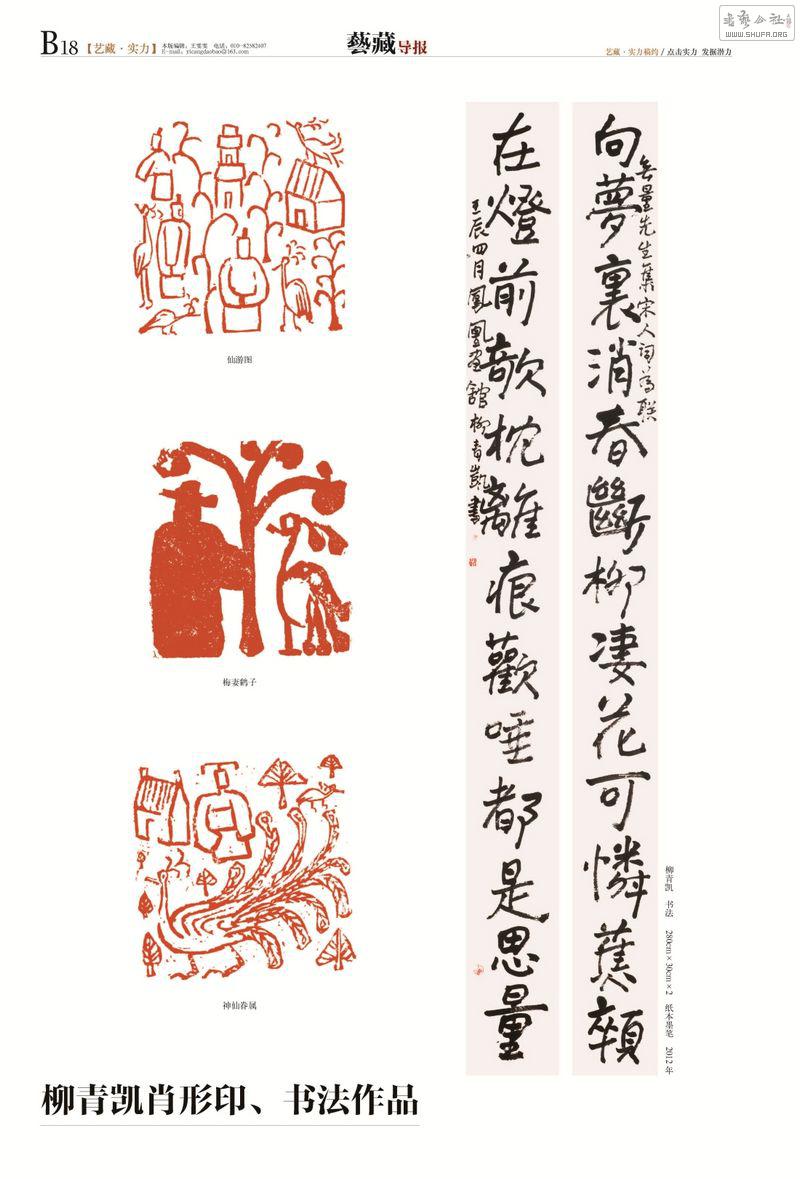 B18 【艺藏·实力】 本版编辑：王雯雯 电话：
E-mail: yicangdaobao@163.com
藝藏导报
艺藏·实力稿约 / 点击实力 发掘潜力
WWW.SHUFA.ORG
向夢裏消春斷柳凄花可憐蕉顇
无量先生集宋人词为联
在燈前欹枕離痕歡唾都是思量
壬辰四月鳳凰画館柳青凱書
仙游图
梅妻鹤子
神仙眷属
柳青凯 书法 280cm×30cm×2 纸本墨笔 2012年
柳青凯肖形印、书法作品